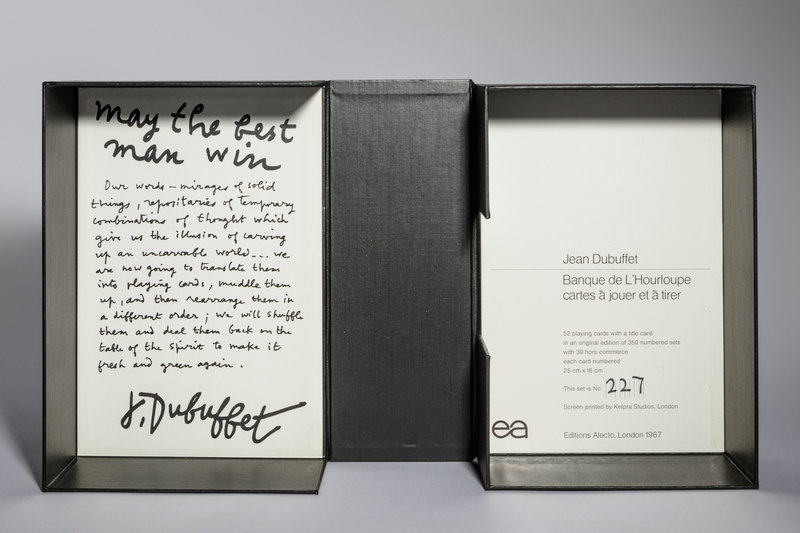 may the best
man win
Our words – mirages of solid
things, repositaries of temporary
combinations of thought which
give us the illusion of carving
up an uncarvable world... we
are now going to translate them
into playing cards, muddle them
up, and then rearrange them in
a different order; we will shuffle
them and deal them back on the
table of the spirit to make it
fresh and green again.
J. Dubuffet
Jean Dubuffet
Banque de L'Hourloupe
cartes à jouer et à tirer
52 playing cards with a title card
in an original edition of 350 numbered sets
with 30 hors commerce
each card numbered
25 cm x 16 cm
This set is No. 227
Screen printed by Kelpra Studios, London
ea
Editions Alecto, London 1967